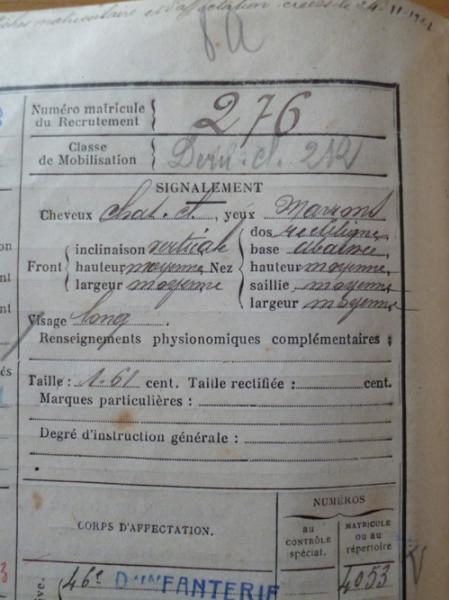 matriculaire et d'affectation créés le 24.11.
Numéro matricule du Recrutement 276
Classe de Mobilisation
SIGNALEMENT
Cheveux chat. cl., yeux Marrons
Front inclinaison verticale
hauteur moyenne
largeur moyenne
Nez dos rectiligne
base abaissée
hauteur moyenne
saillie moyenne
largeur moyenne
Visage long.
Renseignements physionomiques complémentaires :
Taille : 1.61 cent. Taille rectifiée : cent.
Marques particulières :
Degré d'instruction générale :
CORPS D'AFFECTATION.
NUMÉROS
au CONTRÔLE spécial.
MATRICULE ou au répertoire
46e D'INFANTERIE
4053